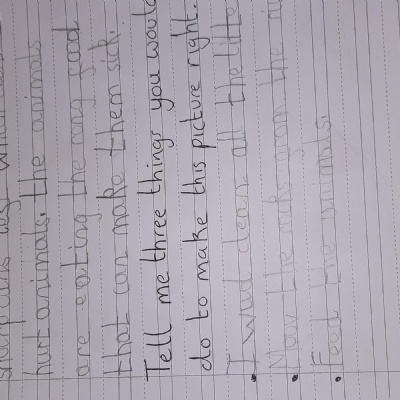 hurt animals. the animals
are eating the rong food
that can make them sick.
Tell me three things you would
do to make this picture right.
I wud clean all the litte
Mov the
Feed the animals.